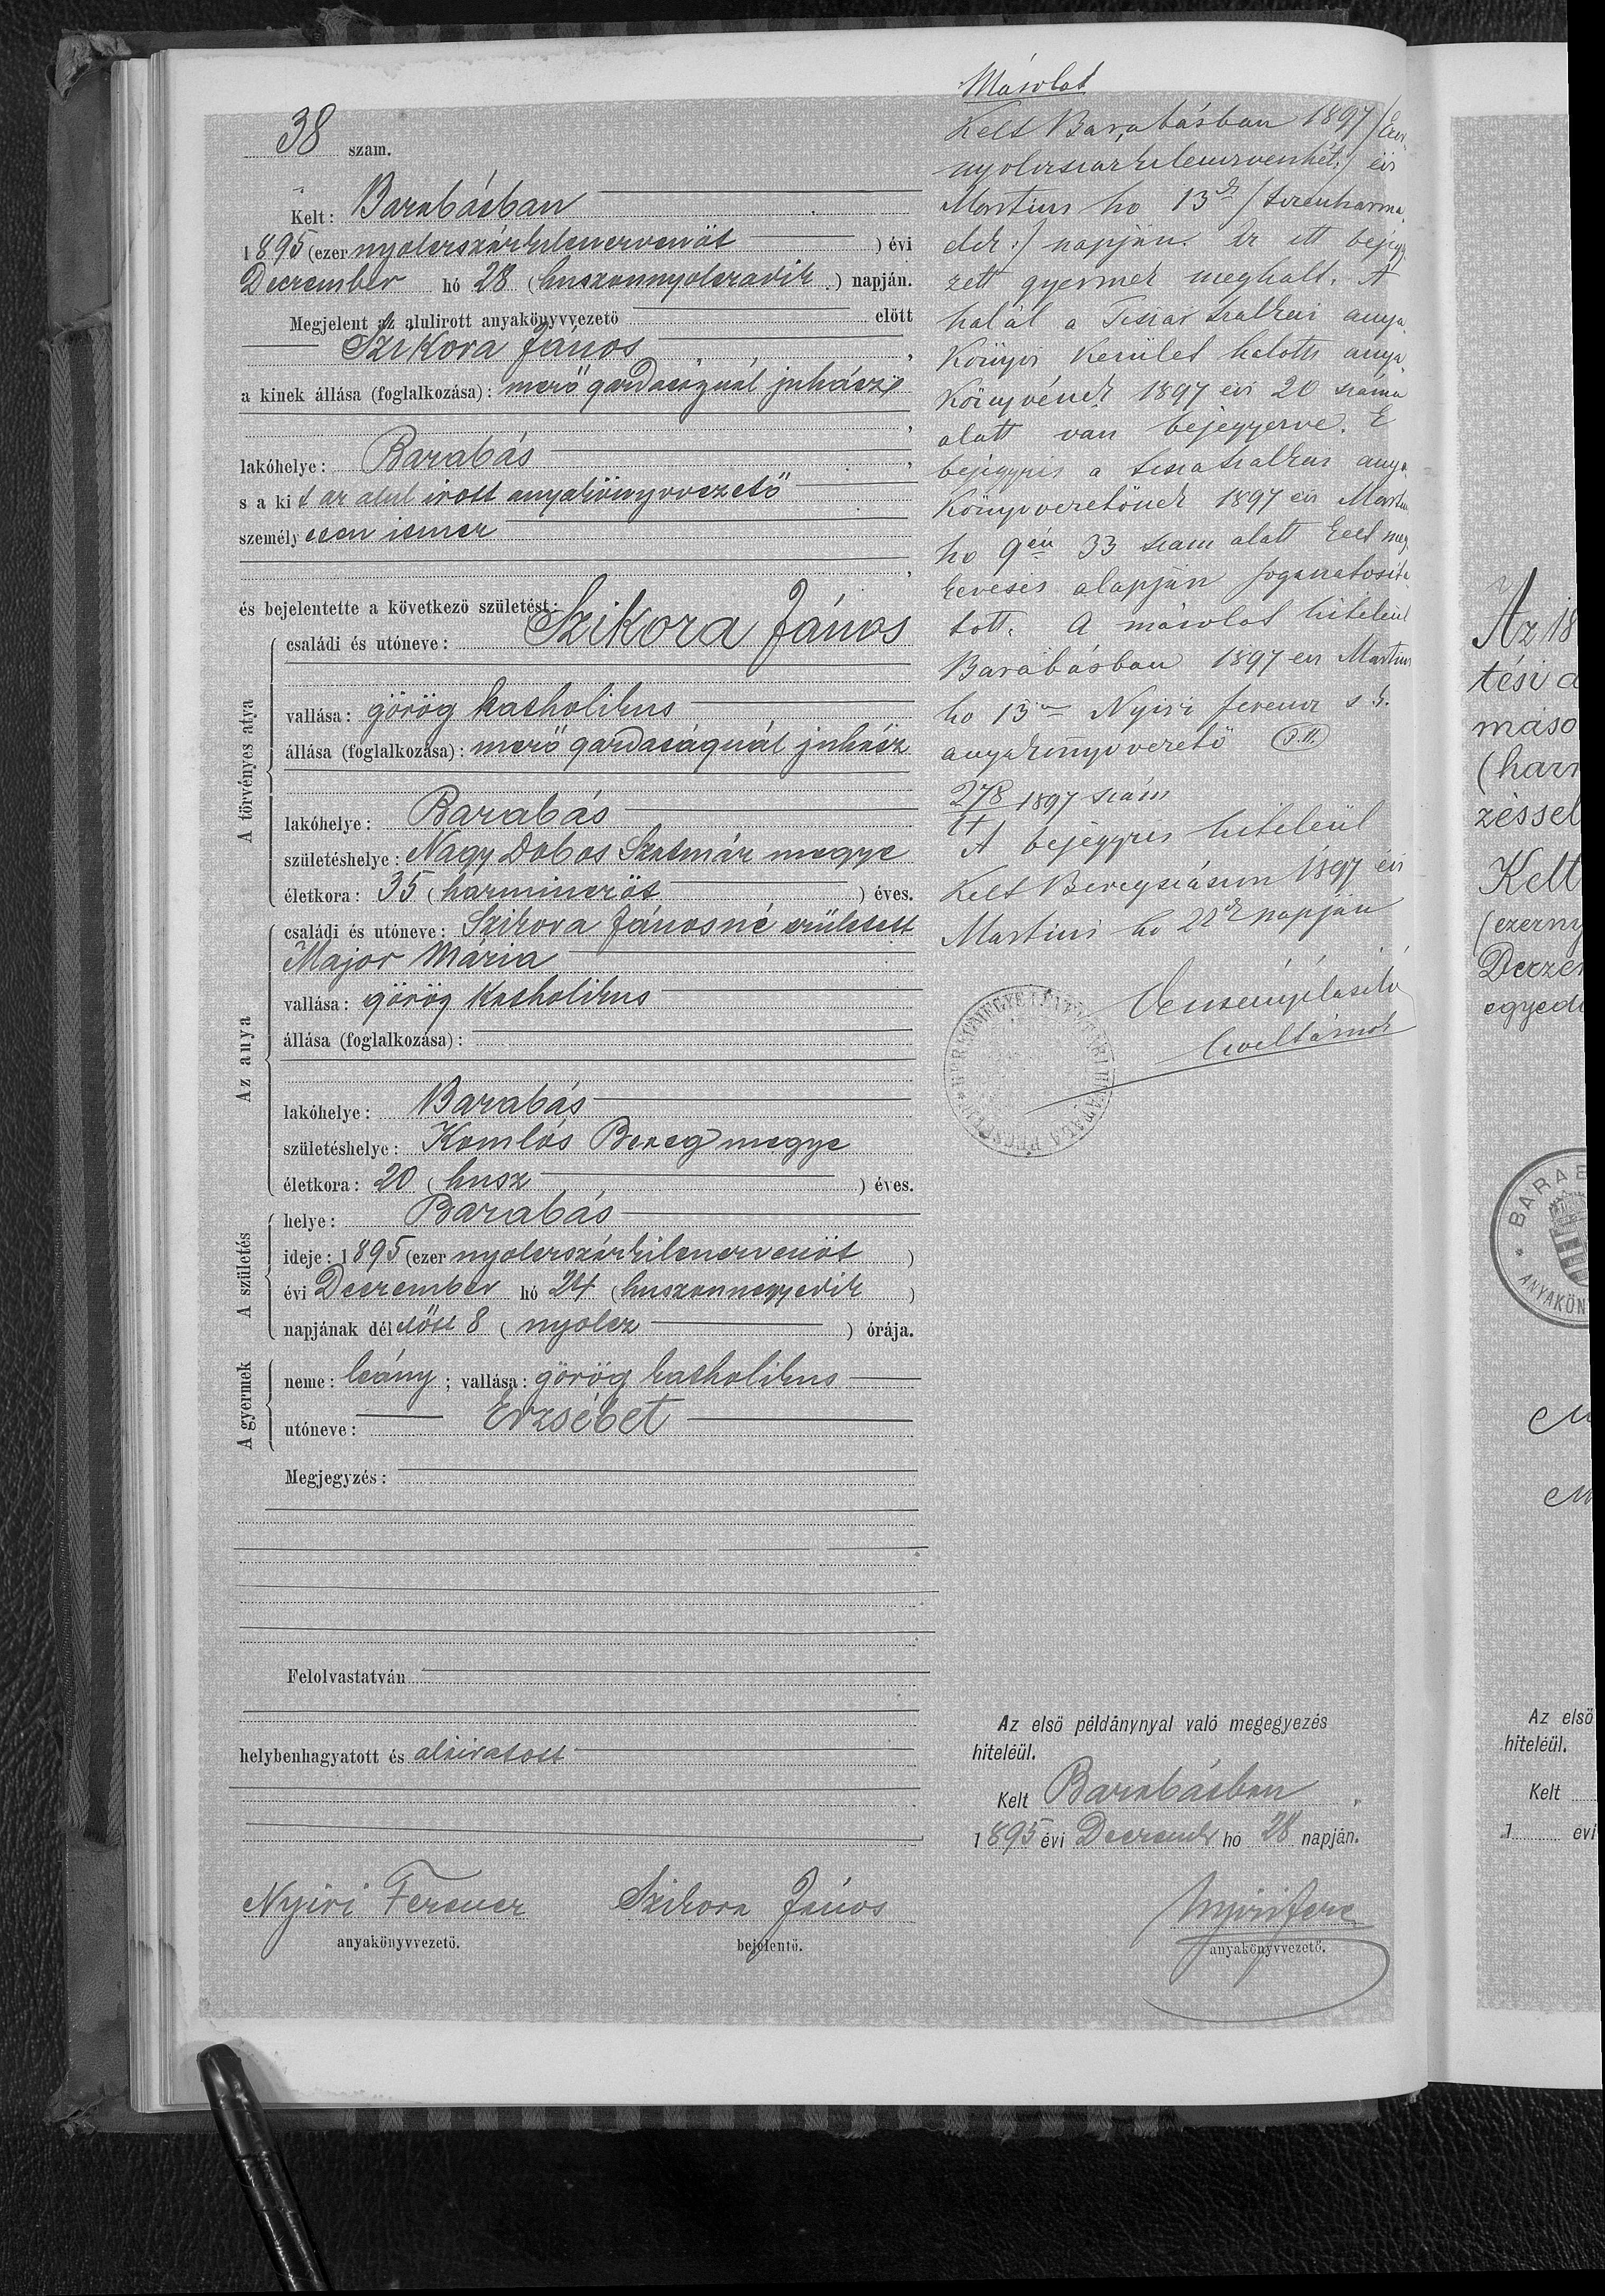 38 szam.
Kelt: Barabásban
1895 (ezer nyolczszázkilenczvenöt) évi
Deczember hó 28 (huszonnyolczadik) napján.
Megjelent az alulirott anyakönyvvezetö elött
Szikora János,
a kinek állása (foglalkozása): mező gardaságnál juhász
,
lakóhelye: Barabás,
s a kit az alul irott anyakönyvvezető
személyesen ismer
,
és bejelentette a következö születést:
A törvényes atya
családi és utóneve: Szikora János
vallása: görög katholikus
állása (foglalkozása): mező gardaságnál juhász
lakóhelye: Barabás
születéshelye: Nagy Dobos Szatmár megye
életkora: 35 (harminczöt) éves.
Az anya
családi és utóneve: Szikora Jánosné született
Major Mária
vallása: görög katholikus
állása (foglalkozása):
lakóhelye: Barabás
születéshelye: Komlós Bereg megye
életkora: 20 (husz) éves.
A születés
helye: Barabás
ideje: 1895 (ezer nyolczszázkilenczvenöt)
évi Deczember hó 24 (huszonnegyedik)
napjának délelőtt 8 (nyolcz) órája.
A gyermek
neme: leány; vallása: görög katholikus
utóneve: Erzsébet
Megjegyzés:
Felolvastatván
helybenhagyatott és aláiratott
Nyiri Ferencz
anyakönyvvezetö.
Szikora János
bejelentö.
Másolat
Kelt Barabásban 1897 (Ezer
nyolczszázkilenczvenhét:) évi
Martius ho 13ik (tizenharma
dik:) napján. Az itt bejegy
zett gyermek meghalt. A
halál a Tisza szalkai anya
könyvi kerület halotti anya
könyvének 1897 évi 20 száma
alatt van bejegyezve. E
bejegyzés a tiszaszalkai anya
könyvvezetőnek 1897 évi Martius
ho 9én 33 szám alatt kelt meg
keresés alapján foganatosít
tott. A másolat hiteléül
Barabásban 1897 évi Martius
ho 13án Nyiri Ferencz s. k.
anyakönyvvezető P.H.
278 1897 szám
A bejegyzés hiteléül
Kelt Beregszászon 1897 évi
Martius hó 22ik napján
levéltárnok
Az elsö példánynyal való megegyezés
hiteléül.
Kelt Barabásban,
1895 évi Deczember hó 28 napján.
Nyiri Ferenc
anyakönyvvezetö.
Az 18
tési a
máso
(harm
zéssel
Kelt
(ezerny
Deczem
egyedi
BARAB
ANYAKÖN
Az elsö
hiteléül.
Kelt
1 évi